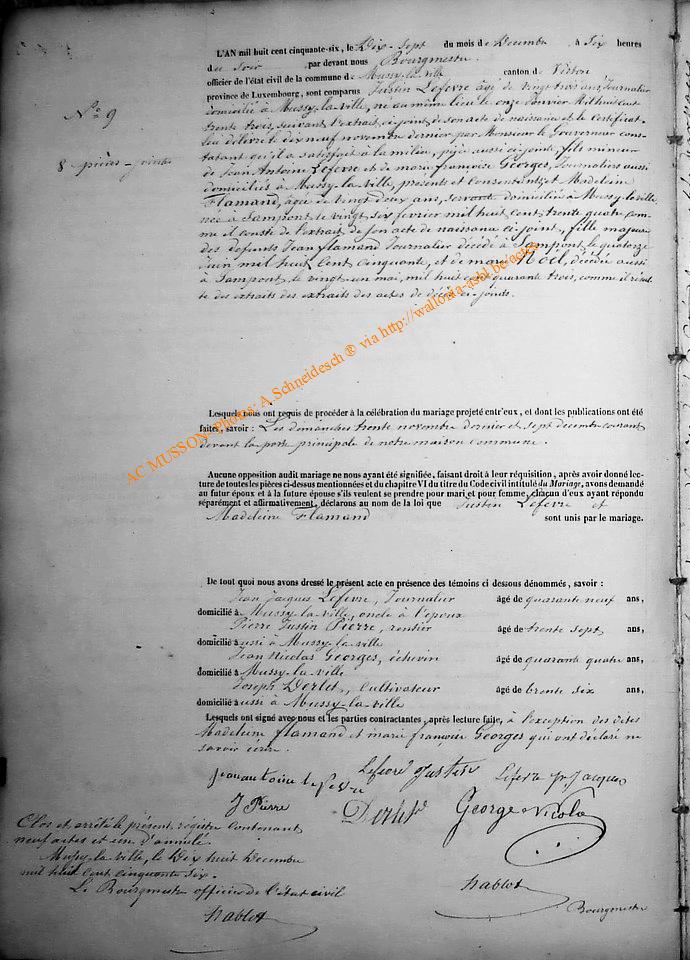 L'AN mil huit cent cinquante-six, le Dix-Sept du mois de Decembre à Six heures
du soir par devant nous Bourgmestre
officier de l'état civil de la commune de Mussy-la-ville canton de Virton
province de Luxembourg, sont comparus Justin Lefevre âgé de vingt trois ans, Journalier
domicilié à Mussy-la-ville, né au même lieu le onze Janvier Mil huit cent
trente trois, suivant l'extrait ci-joint de son acte de naissance et le Certificat
délivré le dix neuf novembre dernier par Monsieur le Gouverneur cons-
tatant qu'il a satisfait à la milice, pièce aussi ci-jointe, fils mineur
de Jean Antoine Lefevre et de marie françoise Georges, Journaliers aussi
domiciliés à Mussy-la-ville, présents et Consentants, et Madeleine
Flamand, âgée de vingt deux ans, servante domiciliée à Mussy-la-ville
née à Sampont le vingt six fevrier mil huit Cent trente quatre com-
me il conste de l'extrait de son acte de naissance ci-joint, fille majeure
des defunts Jean flamand Journalier décédé à Sampont le quatorze
Juin mil huit Cent Cinquante, et de marie Noël, décédée aussi
à Sampont, le vingt-un mai, mil huit cent quarante trois, comme il résul-
te des extraits des extraits des actes de décès ci-joints.
N° 9
8 pièces-jointes
Lesquels nous ont requis de procéder à la célébration du mariage projeté entr'eux, et dont les publications ont été
faites, savoir : Les dimanches trente novembre dernier et sept decembre courant
devant la porte principale de notre maison Commune.
Aucune opposition audit mariage ne nous ayant été signifiée, faisant droit à leur réquisition, après avoir donné lec-
ture de toutes les pièces ci-dessus mentionnées et du chapitre VI du titre du Code civil intitulé du Mariage, avons demandé
au futur époux et à la future épouse s'ils veulent se prendre pour mari et pour femme, chacun d'eux ayant répondu
séparément et affirmativement, déclarons au nom de la loi que Justin Lefevre et
Madeleine Flamand sont unis par le mariage.
De tout quoi nous avons dressé le présent acte en présence des témoins ci dessous dénommés, savoir :
Jean Jacques Lefevre, Journalier âgé de quarante neuf ans,
domicilié à Mussy-la-ville, oncle à l'époux
Pierre Justin Pierre, rentier âgé de trente sept ans,
domicilié aussi à Mussy-la-ville
Jean Nicolas Georges, échevin âgé de quarante quatre ans,
domicilié à Mussy-la-ville
Joseph Derlet, Cultivateur âgé de trente six ans,
domicilié aussi à Mussy-la-ville
Lesquels ont signé avec nous et les parties contractantes, après lecture faite, à l'exception des dites
Madeleine flamand et marie françoise Georges qui ont déclaré ne
savoir écrire.
jean antoine lefevre Lefevre Justin Lefevre J Jacques
J Pierre Derlet George Nicola
Clos et arrêté le présent, registre Contenant
neuf actes et un d'annulé.
Mussy-la-ville, le Dix huit Decembre
mil huit Cent cinquante six.
Le Bourgmestre officier de l'état civil
Hablot
Hablot
Bourgmestre
AC MUSSON- photos: A.Schneidesch ® via http://wallonia-asbl.be/actes